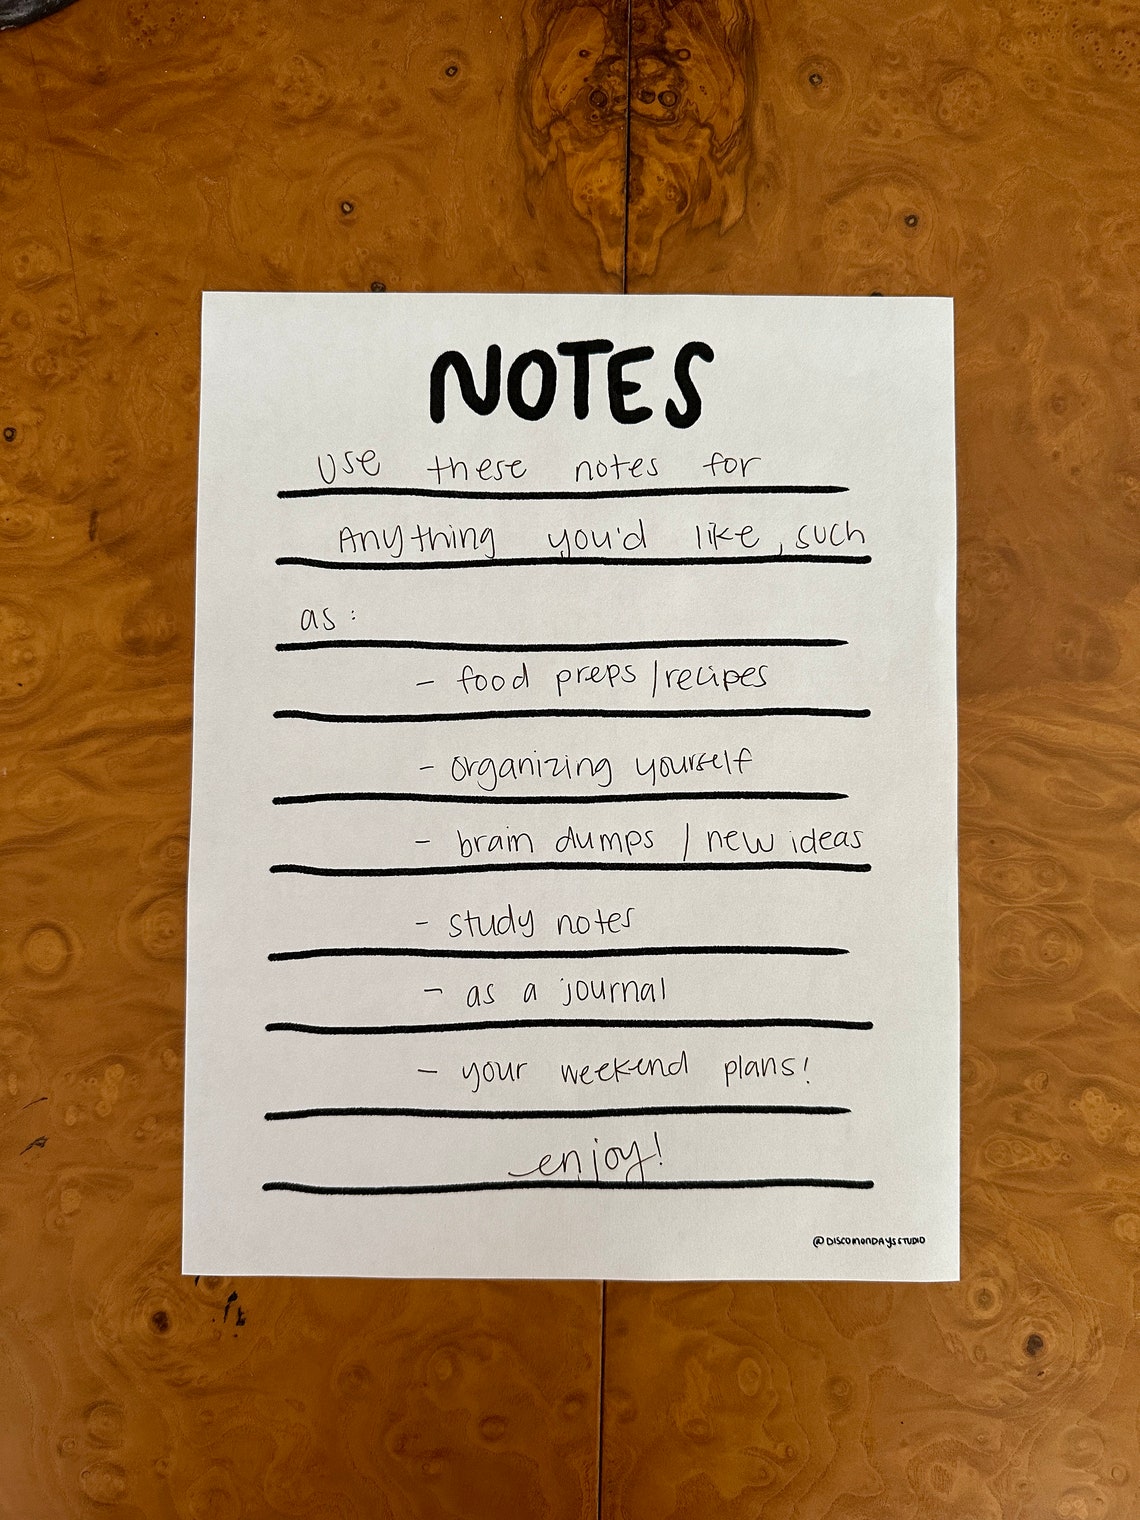 NOTES
Use these notes for
Anything you'd like, such
as:
- food preps / recipes
- organizing yourself
- brain dumps / new ideas
- study notes
- as a journal
- your weekend plans!
enjoy!
@DISCOMONDAYSSTUDIO